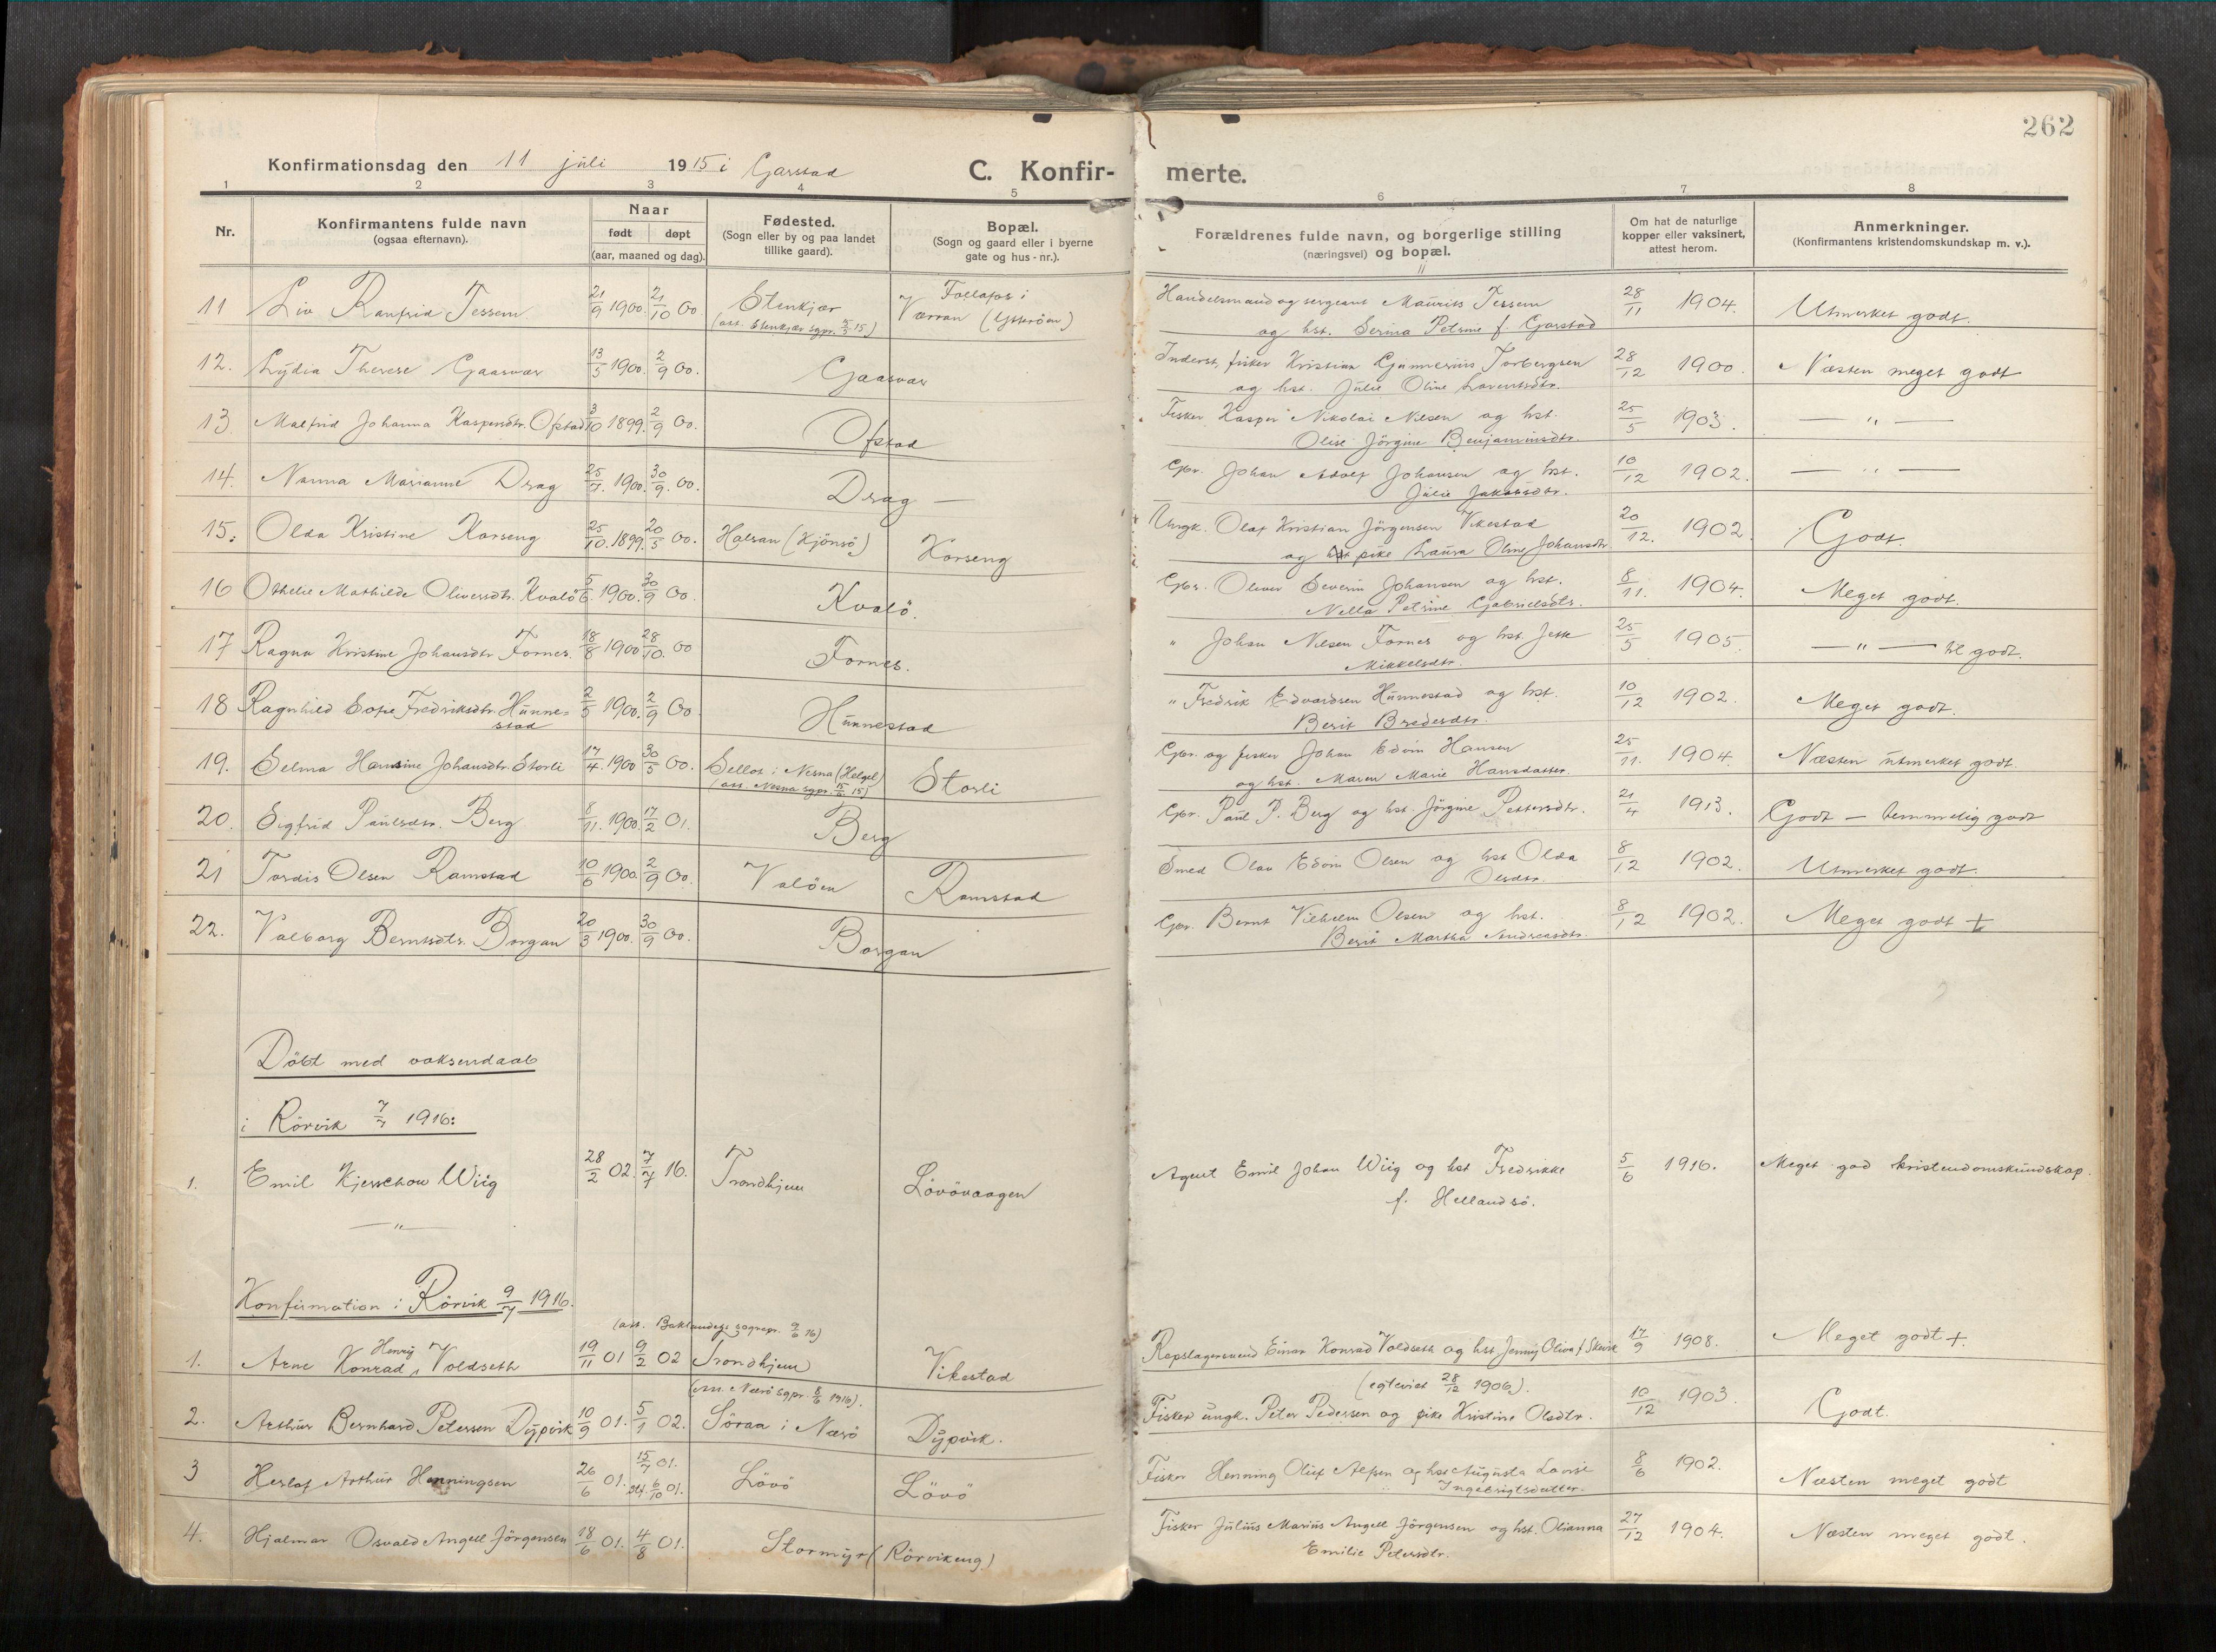 262
Konfirmationsdag den 11 juli 1915 i Garstad
C. Konfir-
merte.
1 2 3 4 5 6 7 8
Nr.
Konfirmantens fulde navn
(ogsaa efternavn).
Naar
født døpt
(aar, maaned og dag).
Fødested.
(Sogn eller by og paa landet
tillike gaard).
Bopæl.
(Sogn og gaard eller i byerne
gate og hus-nr.).
Forældrenes fulde navn, og borgerlige stilling
(næringsvei) og bopæl.
Om hat de naturlige
kopper eller vaksinert,
attest herom.
Anmerkninger.
(Konfirmantens kristendomskundskap m. v.).
11 Liv Ranfrid Tessem 21/9 1900. 21/10 00 Stenkjær Follafos i
(att. Stenkjær sgpr. 15) Værran (Ytterøen)
Handelsmand og sergeant Maurits Tessem 28/11 1904. Utmerket godt.
og hst. Serina Petrine f. Garstad
12. Lydia Therese Gaasvær 13/5 1900. 2/9 00. Gaasvær
Inderst, fisker Kristian Gunnerius Torbergsen 28/12 1900. Næsten meget godt
og hst. Julie Oline Lorentsdtr.
13. Malfrid Johanna Kaspersdtr. Ofstad 3/10 1899. 2/9 00. Ofstad
Fisker Kasper Nikolai Nilsen og hst. 25/5 1903. — " —
Olise Jörgine Benjaminsdtr.
14. Nanna Marianne Drag 25/7. 1900. 30/9. 00. Drag —
Gbr. Johan Adolf Johansen og hst. 10/12 1902. — " —
Julie Jakobsdtr.
15. Olda Kristine Korseng 25/10. 1899. 20/5 00. Halsan (Kjönsö) Korseng
Ungk. Olaf Kristian Jörgensen Vikestad 20/12. 1902. Godt.
og pike Laura Oline Johansdtr
16 Othelie Mathilde Oliversdtr. Kvalö 5/6. 1900. 30/9 00. Kvalö.
Gbr. Oliver Severin Johansen og hst. 8/11. 1904. Meget godt.
Nella Petrine Gabrielsdtr.
17 Ragna Kristine Johansdtr Fornes. 18/8 1900 28/10. 00 Fornes.
" Johan Nilsen Fornes og hst. Jette 25/5 1905. — " — til godt.
Mikkelsdtr.
18 Ragnhild Sofie Fredriksdtr. Hunne= 2/5 1900. 2/9 00. Hunnestad
stad
" Fredrik Edvardsen Hunnestad og hst. 10/12 1902. Meget godt.
Berit Bredesdtr.
19. Selma Hansine Johansdtr. Storli 17/4. 1900 30/5 00. Sellot i Nesna (Helgel) Storli
(att. Nesna sgpr. 15)
Gbr. og fisker Johan Edvin Hansen 25/11. 1904. Næsten utmerket godt.
og hst. Maren Marie Hansdatter.
20. Sigfrid Paulsdtr. Berg 8/11. 1900. 17/2 01. Berg
Gbr. Paul P. Berg og hst. Jörgine Pettersdtr. 21/4 1913. Godt — temmelig godt
21 Tordis Olsen Ramstad 10/6 1900. 2/9 00. Valöen Ramstad
Smed Olav Edvin Olsen og hst Olda 8/12 1902. Utmerket godt.
Olsdtr.
22. Valborg Berntsdtr. Borgan 20/3 1900. 30/9 00. Borgan
Gbr. Bernt Vilhelm Olsen og hst. 8/12 1902. Meget godt +
Berit Martha Andreasdtr.
Döbt med voksendaab
i Rörvik 7/7 1916:
1. Emil Kjerschow Wiig 28/2 02. 7/7 16. Trondhjem Lövövaagen
Agent Emil Johan Wiig og hst Fredrikke 5/6 1916. Meget god kristendomskundskap.
f. Hellandsö.
— " —
Konfirmation i Rörvik 9/7 1916.
(att. Baklandets sognepr. 9/6 16)
1. Arne Konrad Henry Voldseth 19/11 01 9/2 02 Trondhjem Vikestad
Repslagersvend Einar Konrad Voldseth og hst Jenny Oliva f Skevik 17/9 1908. Meget godt +.
(egteviet 28/12 1906).
(Att. Nærö sgpr. 8/6 1916).
2. Arthur Bernhard Petersen Dypvik 10/9 01. 5/1 02. Söraa i Nærö Dypvik.
Fisker ungk. Peter Pedersen og pike Kristine Olsdtr. 10/12 1903. Godt.
3 Herlof Arthur Henningsen 26/6 01. 15/7 01. 6/10 01. Lövö Lövö
Fisker Henning Oluf Alfsen og hst Augusta Lovise 8/6 1902. Næsten meget godt
Ingebrigtsdatter.
4. Hjalmar Osvald Angell Jörgensen 18/6 01. 4/8 01. Stormyr (Rörvikeng)
Fisker Julius Marius Angell Jörgensen og hst. Olianna 27/12 1904. Næsten meget godt.
Emilie Petersdtr.